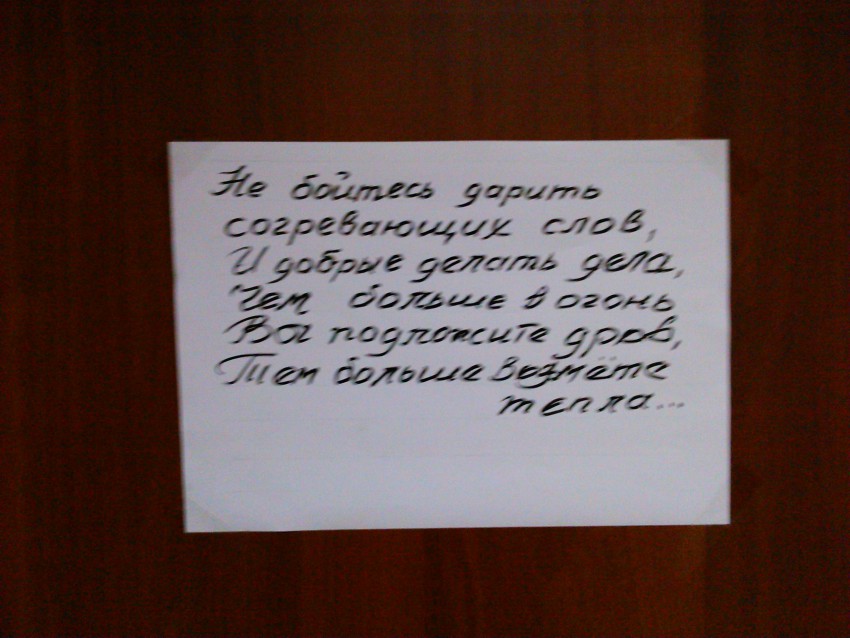 Не бойтесь дарить
согревающих слов,
И добрые делать дела,
Чем больше в огонь
Вы подложите дров,
Тем больше возмёте
тепла...